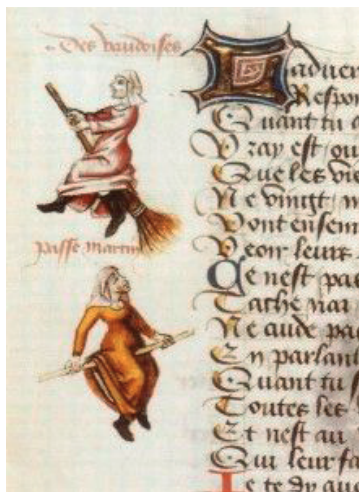 Des vaudoises
passe martin
Laduer
Respon
Quant tu a
Vray est / ou
Que les vie
Ne vingt / n
Vont ensem
Veoir leurs
Ce nest pas
Cathe nai
Ne cuide pas
En parlant
Quant tu
Toutes les
Et nest au
Qui leur fa
Je te dy que